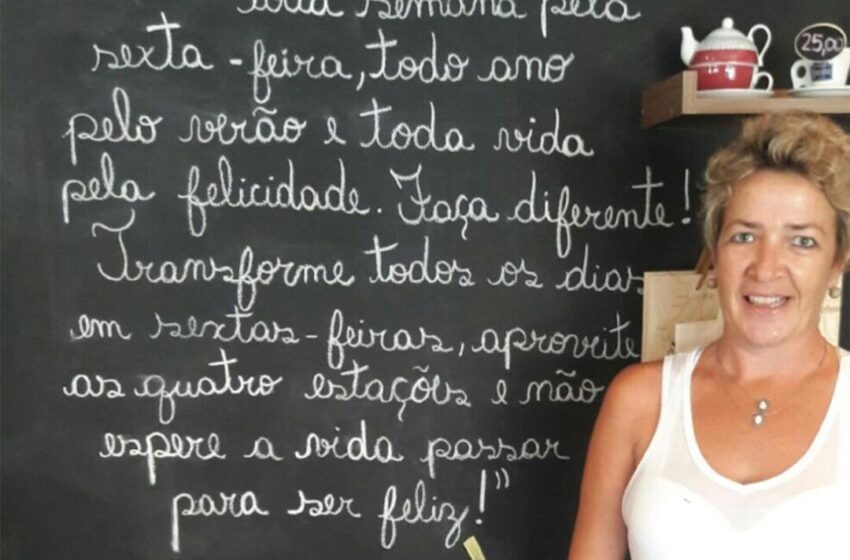 toda semana pela
sexta-feira, todo ano
pelo verão e toda vida
pela felicidade. Faça diferente!
Transforme todos os dias
em sextas-feiras, aproveite
as quatro estações e não
espere a vida passar
para ser feliz!"
25,00